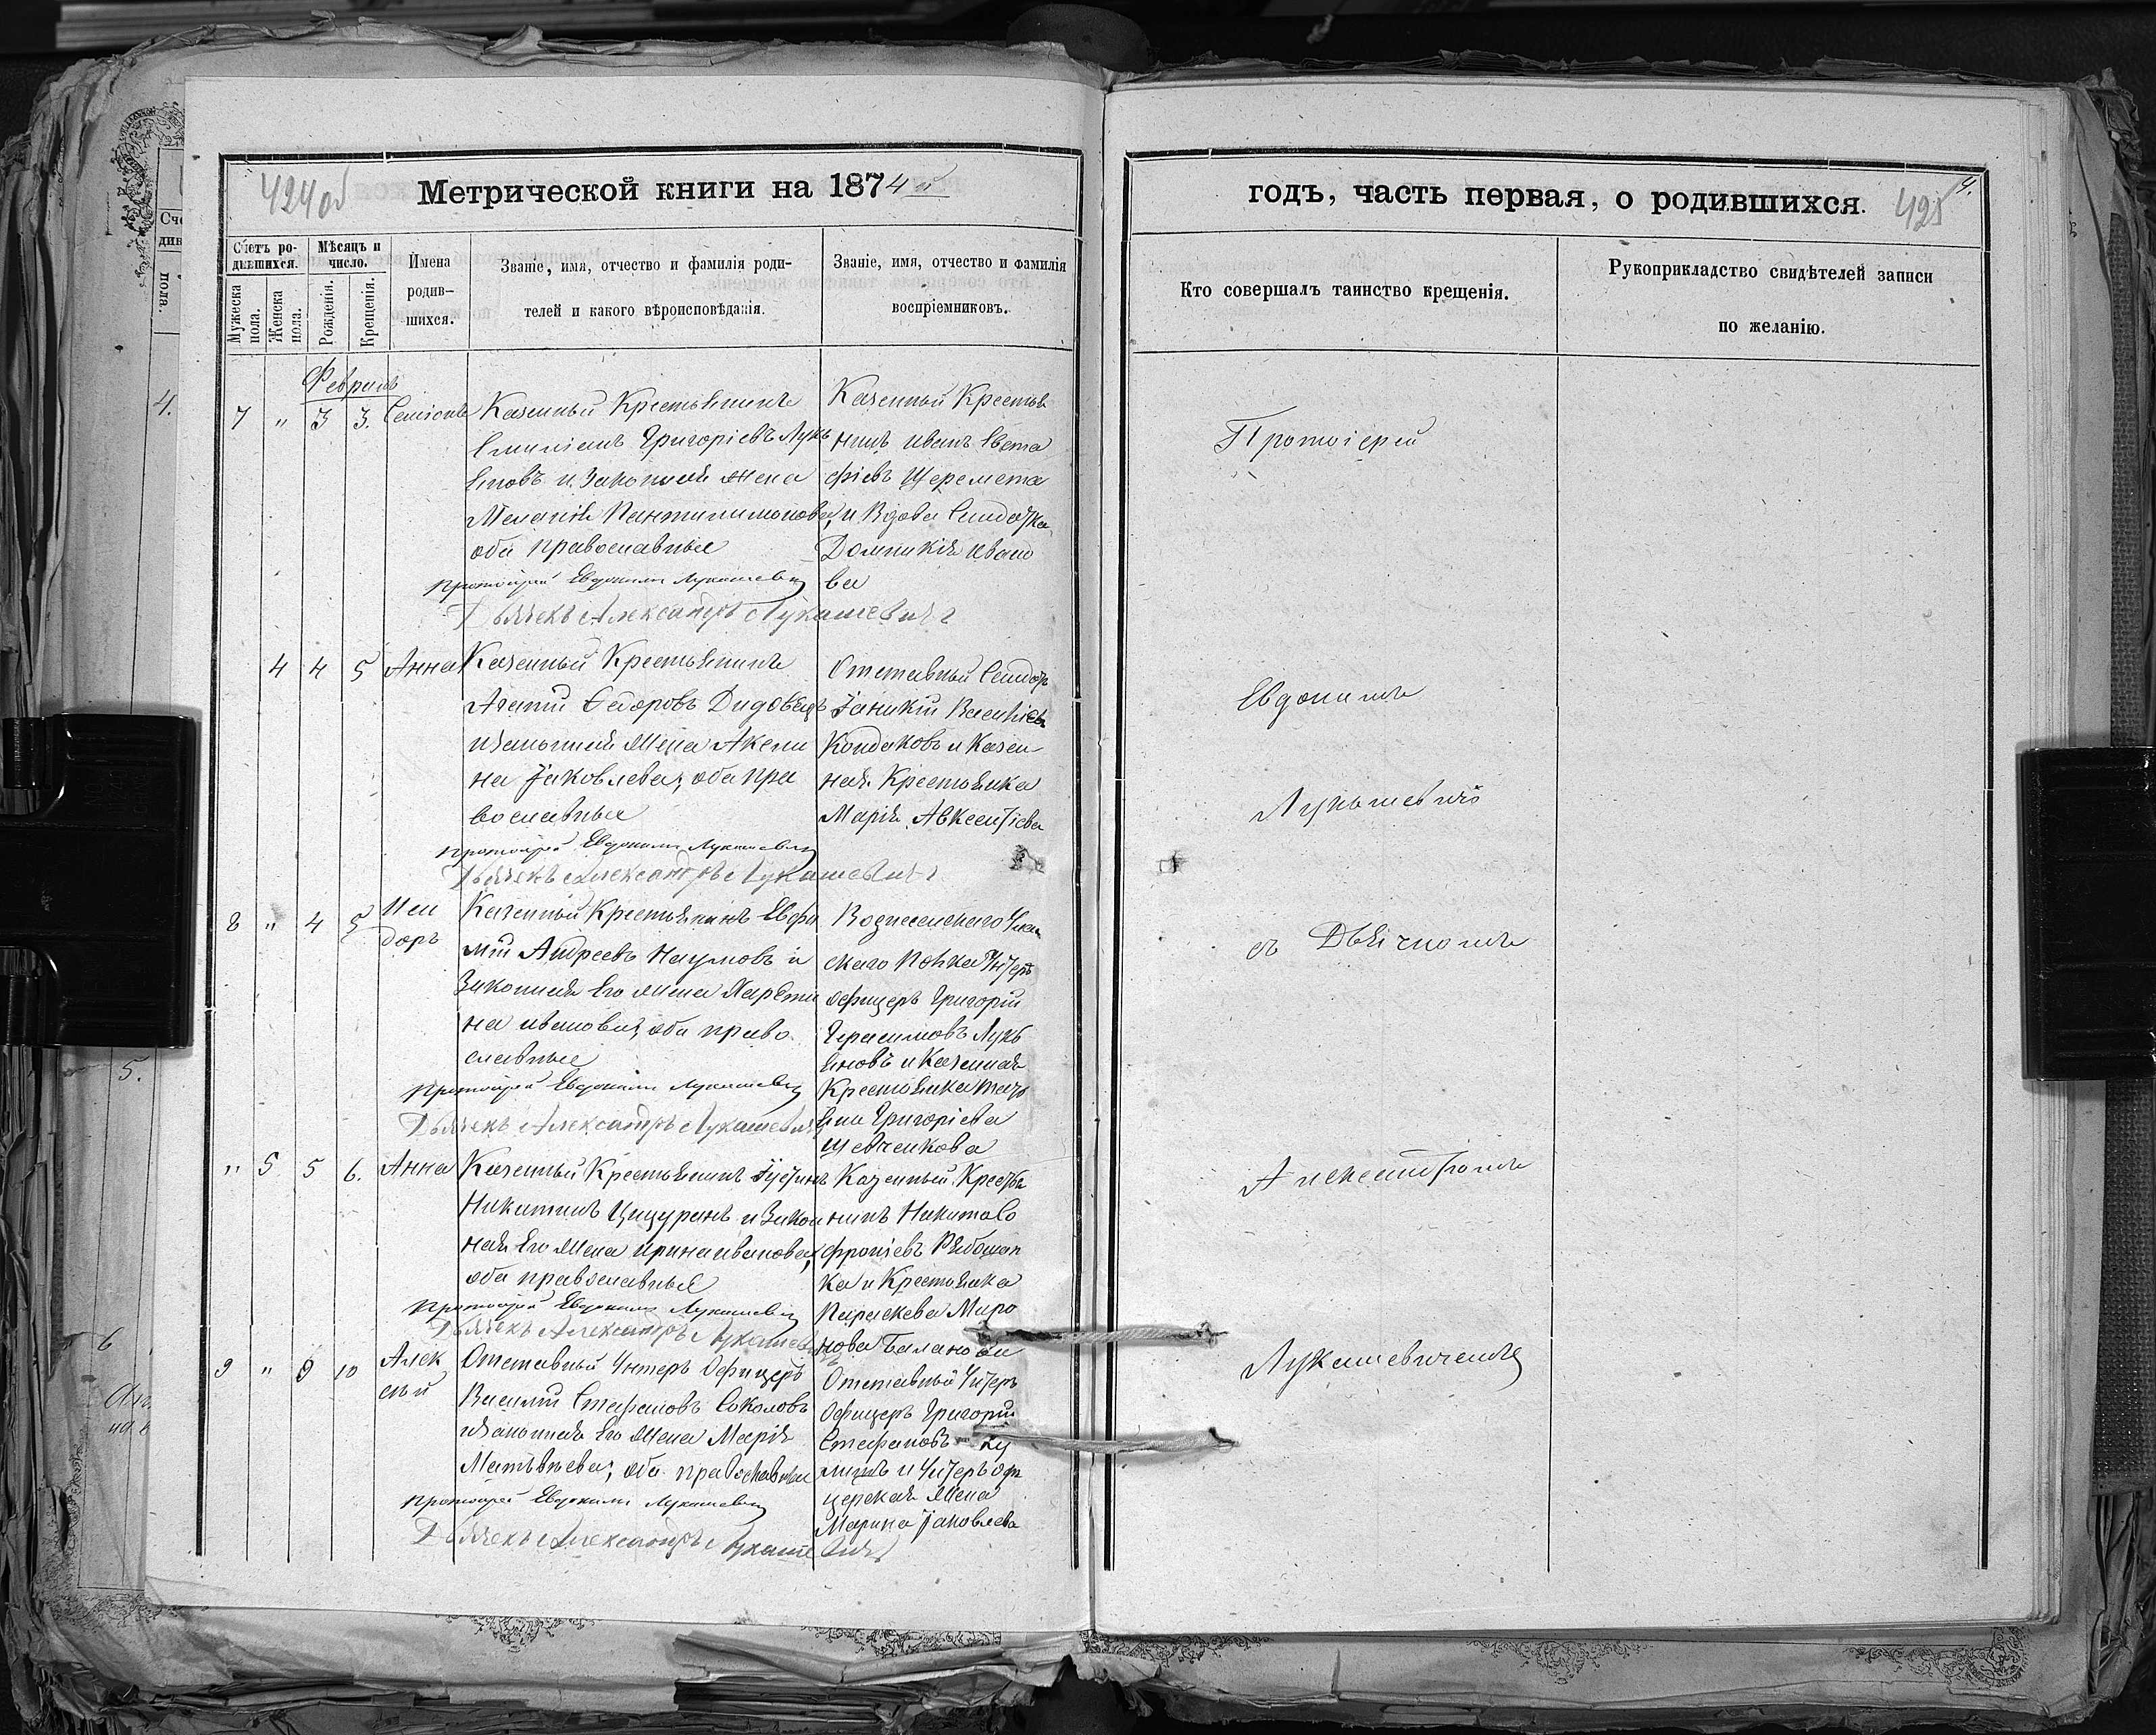 424об
Метрической книги на 1874й
Счетъ ро-
дившихся.
Мѣсяцъ и
число.
Мужеска
пола.
Женска
пола.
Рожденія.
Крещенія.
Имена
родив-
шихся.
Званіе, имя, отчество и фамилія роди-
телей и какого вѣроисповѣданія.
Званіе, имя, отчество и фамилія
воспріемниковъ.
Февраль
7 " 3 3. Симіонъ
Казенный Крестьянинъ
Емиліанъ Григоріевъ Лукь
яновъ и Законная жена
Меланія Пантилимонова,
оба православные
Протоіерей Евдокимъ Лукашевич
Дьячекъ Александръ Лукашевичъ
Казенный Крестья
нинъ Иванъ Евста
фіевъ Шеремета
и Вдова Солдатка
Домникія Ивано
ва
4 4 5 Анна
Казенный Крестьянинъ
Агапій Федоровъ Дидовецъ
и Законная Жена Аксени
на Іаковлева, оба пра
вославные
Протоіерей Евдокимъ Лукашевич
Дьячекъ Александръ Лукашевичъ
Отставный Солдатъ
Іаникій Василіевъ
Кондаковъ и Казен
ная Крестьянка
Марія Авксентіева
8 " 4 5 Иси
доръ
Казенный Крестьянинъ Евфи
мій Андреевъ Наумовъ и
Законная Его Жена Харети
на Иванова, оба право
славные
Протоіерей Евдокимъ Лукашевич
Дьячекъ Александръ Лукашевич
Вознесенскаго Улан
скаго Полка Унтеръ
офицеръ Григорій
Герасимовъ Лукь
яновъ и Казенная
Крестьянка Тать
яна Григоріева
Шевченкова
" 5 5 6. Анна
Казенный Крестьянинъ Іустинъ
Никитинъ Цицуринъ и Закон
ная Его Жена Ирина Иванова,
оба православные
Протоіерей Евдокимъ Лукашевич
Дьячекъ Александръ Лукашев
Казенный Крестья
нинъ Никита Со
фроніевъ Рябошап
ка и Крестьянка
Параскева Миро
нова Баланова
9 " 9 10 Алек
сѣй
Отставный Унтеръ Офицеръ
Василій Стефановъ Соколовъ
и Законная Его Жена Марія
Матѣѣева, оба православные
Протоіерей Евдокимъ Лукашевич
Дьячекъ Александръ Лукашевичъ
Отставный Унтеръ
Офицеръ Григорій
Стефановъ
и Унтеръ офи
церская Жена
Марина Іаковлева
годъ, часть первая, о родившихся.
425
4.
Кто совершалъ таинство крещенія.
Рукоприкладство свидѣтелей записи
по желанію.
Протоіерей
Евдокимъ
Лукашевичъ
съ Дьячкомъ
Александромъ
Лукашевичемъ
4.
5.
6